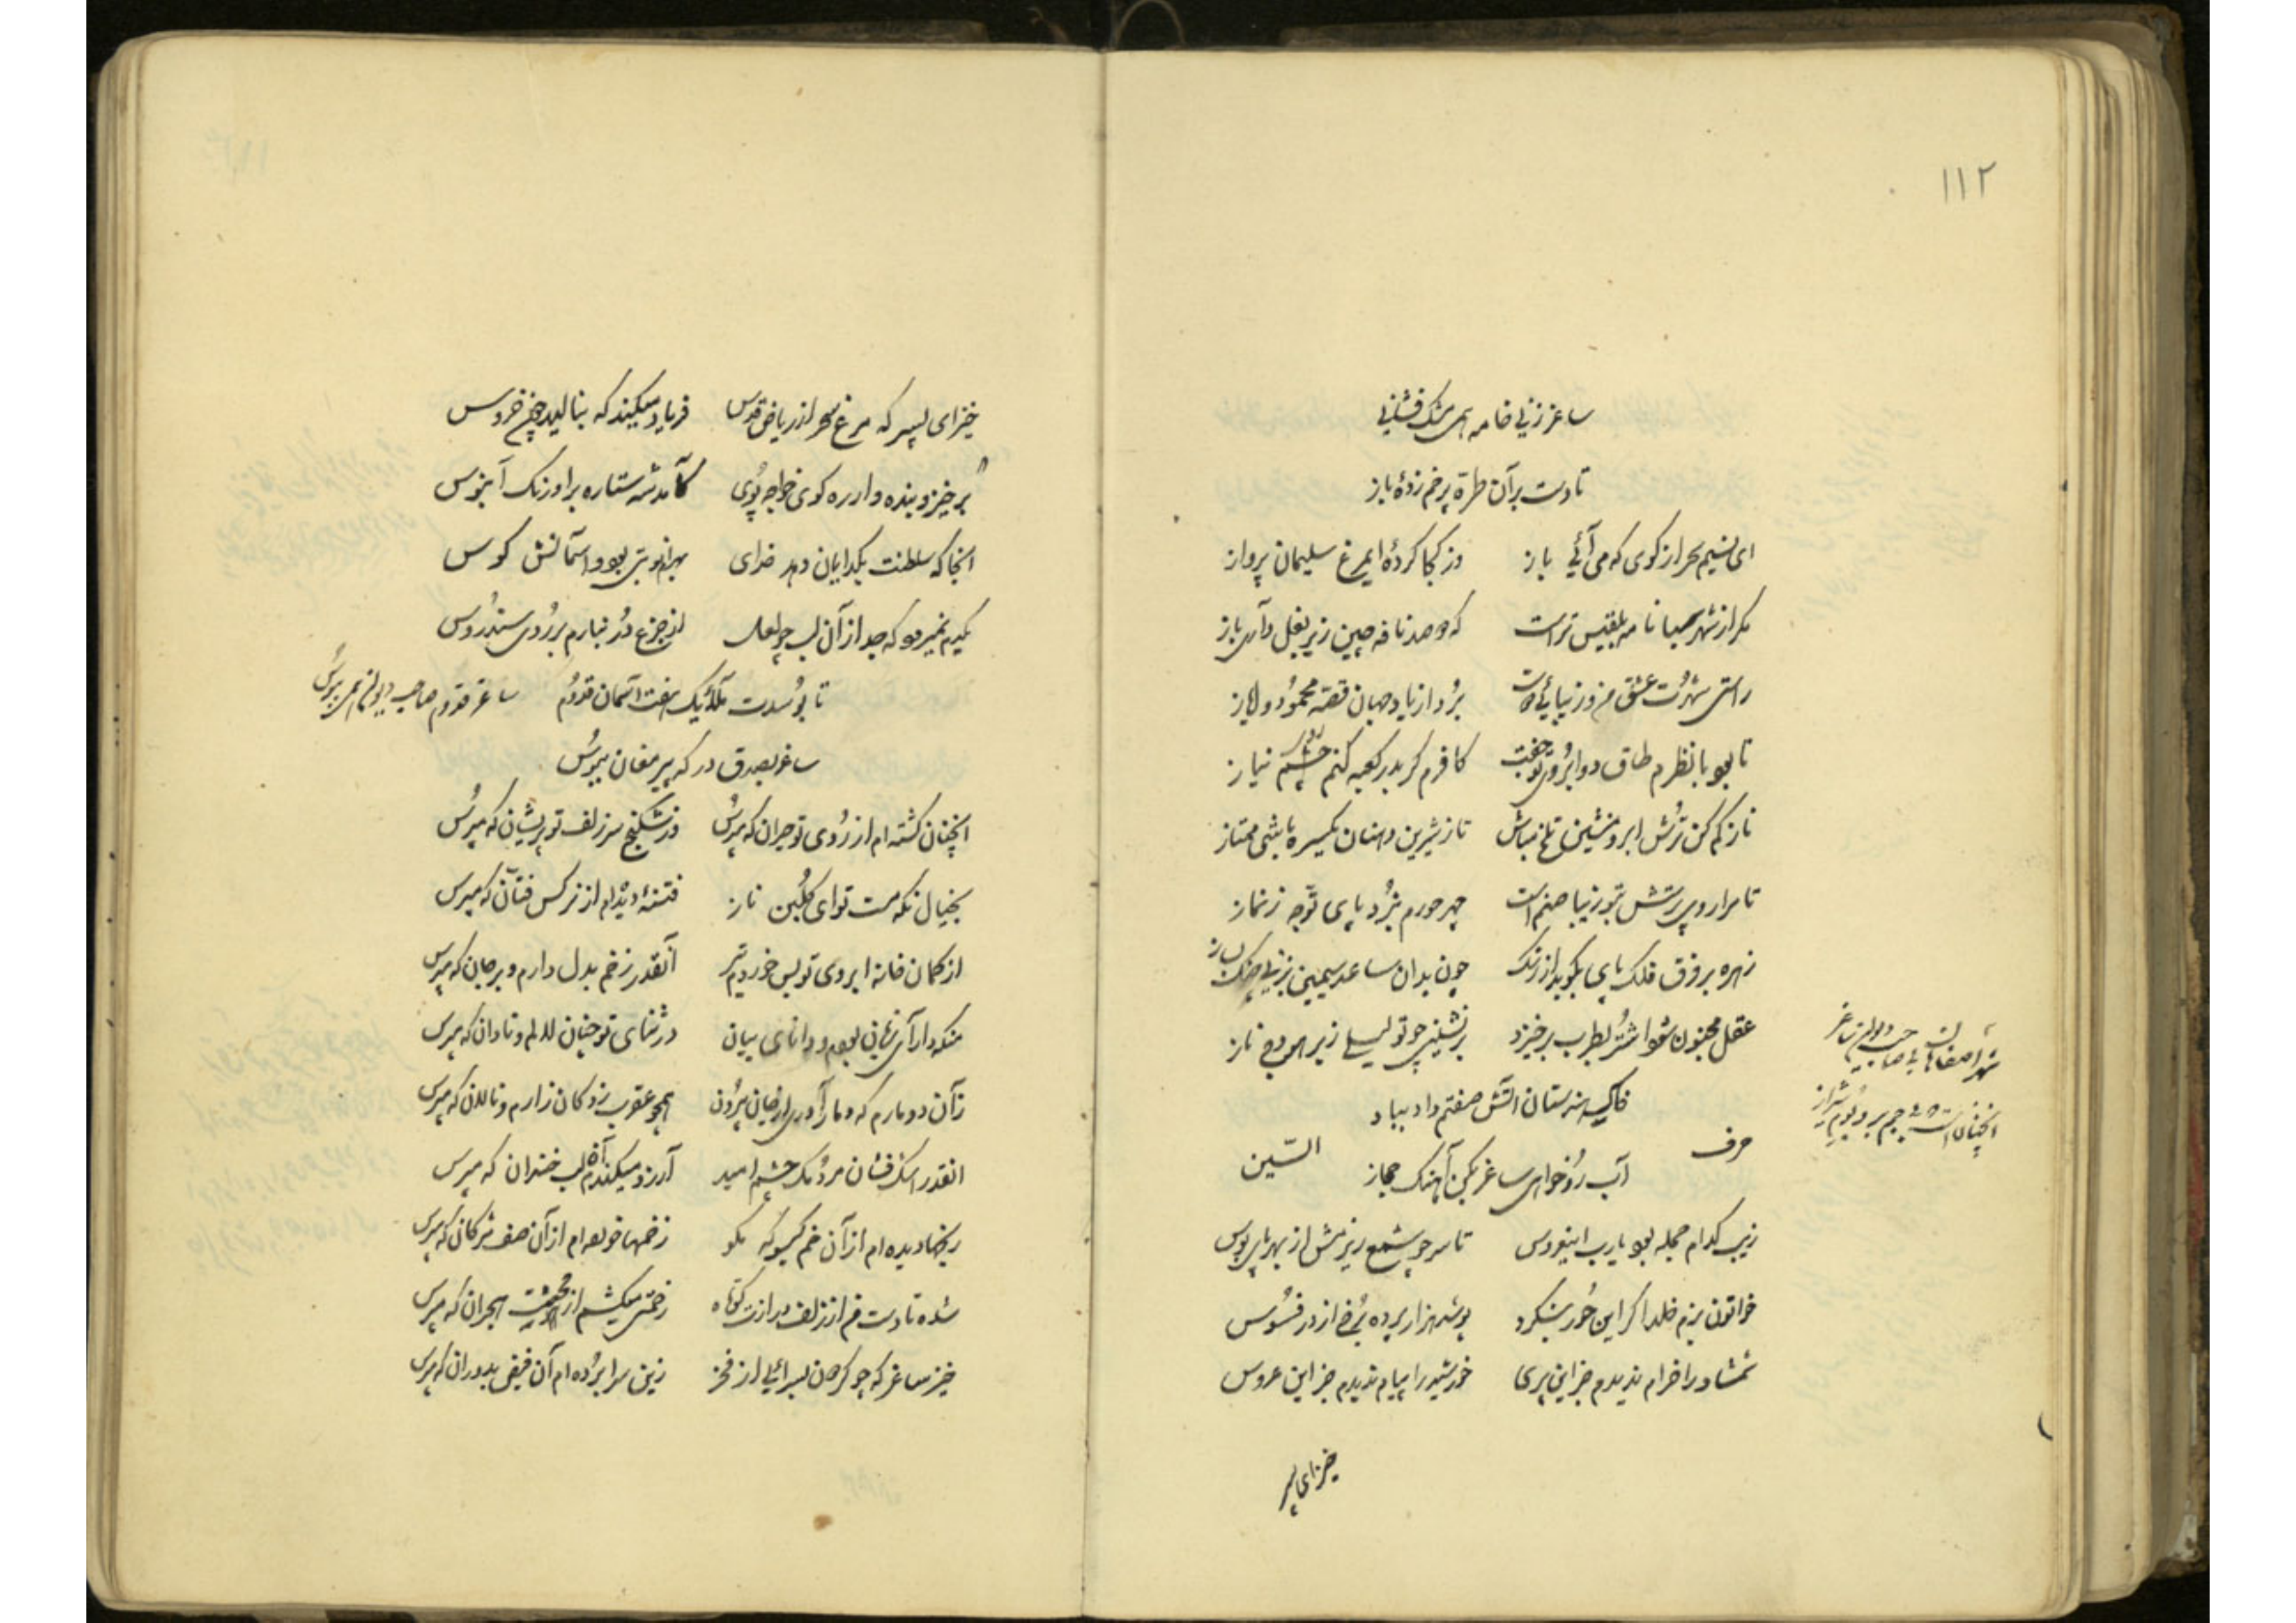 ۱۱۲
ساغر ز نی خامه همی مشک فشانی
تا دست بر آن طرّهٔ پر خم زدهٔ باز
ای نسیم سحر از کوی که می آئی باز وز کجا کردهٔ ای مرغ سلیمان پرواز
مکر از شهر سبا نامه بلقیس تراست که دو صد نافه چین زیر بغل داری باز
راستی شهرت عشق من و زیبائی دوست برد از یاد جهان قصهٔ محمود و ایاز
تا بود با نظرم طاق دو ابروی تو جفت کافرم کر بدر کعبه کنم چشم نیاز
ناز کم کن ترش ابرو منشین تلخ مباش تا ز شیرین دهنان یکسره باشی ممتاز
تا مرا روی پرستش بتو زیبا صنم است بهر حورم نبرد پای توجه ز نماز
زهره بر فوق فلک پای بکوبد از رنک چون بدان ساعد سیمین بزنی چنک بساز
عقل مجنون شود اشتر بطرب برخیزد بنشینی چو تو لیلی زیر هودج ناز
خاک سیستان آتش صفتم داد بباد
آب رخ خواهی ساغر بکن آهنک حجاز
حرف السّین
شهر اصفهان بی صاحب دیوان ساغر
آنچنان است که بی جم برود شیراز
زیب کدام حجله بود یارب این عروس تا سر چو شمع ریزمش از بهر پای بوس
خاتون بزم خلد اکر این حور بنکرد پوشد هزار پرده برخ از در فسوس
شمشاد را خرام ندیدم جز این پری خورشید را پیام ندیدم جز این عروس
خیز ای پسر
خیز ای پسر که مرغ سحر از ریاض قدس فریاد میکند که بنالید چون خروس
برخیز و بنده وار ره کوی خواجه پوی کآمد شه ستاره بر اورنک آبنوس
آنجا که سلطنت بکدایان دهد خدای بهرام نوبتی بود و آسمانش کوس
کیرم نمیرم که جدا از آن لب چو لعل از جزع در نبارم بر روی سندروس
تا بوسدت ملائک هفت آسمان قدوم ساغر قدوم صاحب دیوان همی ببوس
ساغر بصدق درکه پیر مغان ببوس
آنچنان کشته ام از روی تو حیران که مپرس وز شکنج سر زلف تو پریشان که مپرس
بخیال نکه مست تو ای کلبن ناز فتنهٔ دیده ام از نرکس فتّان که مپرس
از کمان خانه ابروی تو بس خوردم تیر آنقدر زخم بدل دارم و بر جان که مپرس
منکه دارای زبان بودم و دانای بیان در ثنای تو چنان لالم و نادان که مپرس
زآن دو مارم که دمار آوری از جان بیرون همچو عقرب زدکان زارم و نالان که مپرس
آنقدر اشک فشان مردمک چشم امید آرزو میکندم آن لب خندان که مپرس
رنجها دیده ام از آن خم کیسو که مکو زخمها خورده ام از آن صف مژکان که مپرس
شده تا دست من از زلف درازت کوتاه زحمتی میکشم از محنت هجران که مپرس
خیز ساغر که چو کرمان بسرائی از فخر زین سرا برده ام آن فیض بدوران که مپرس